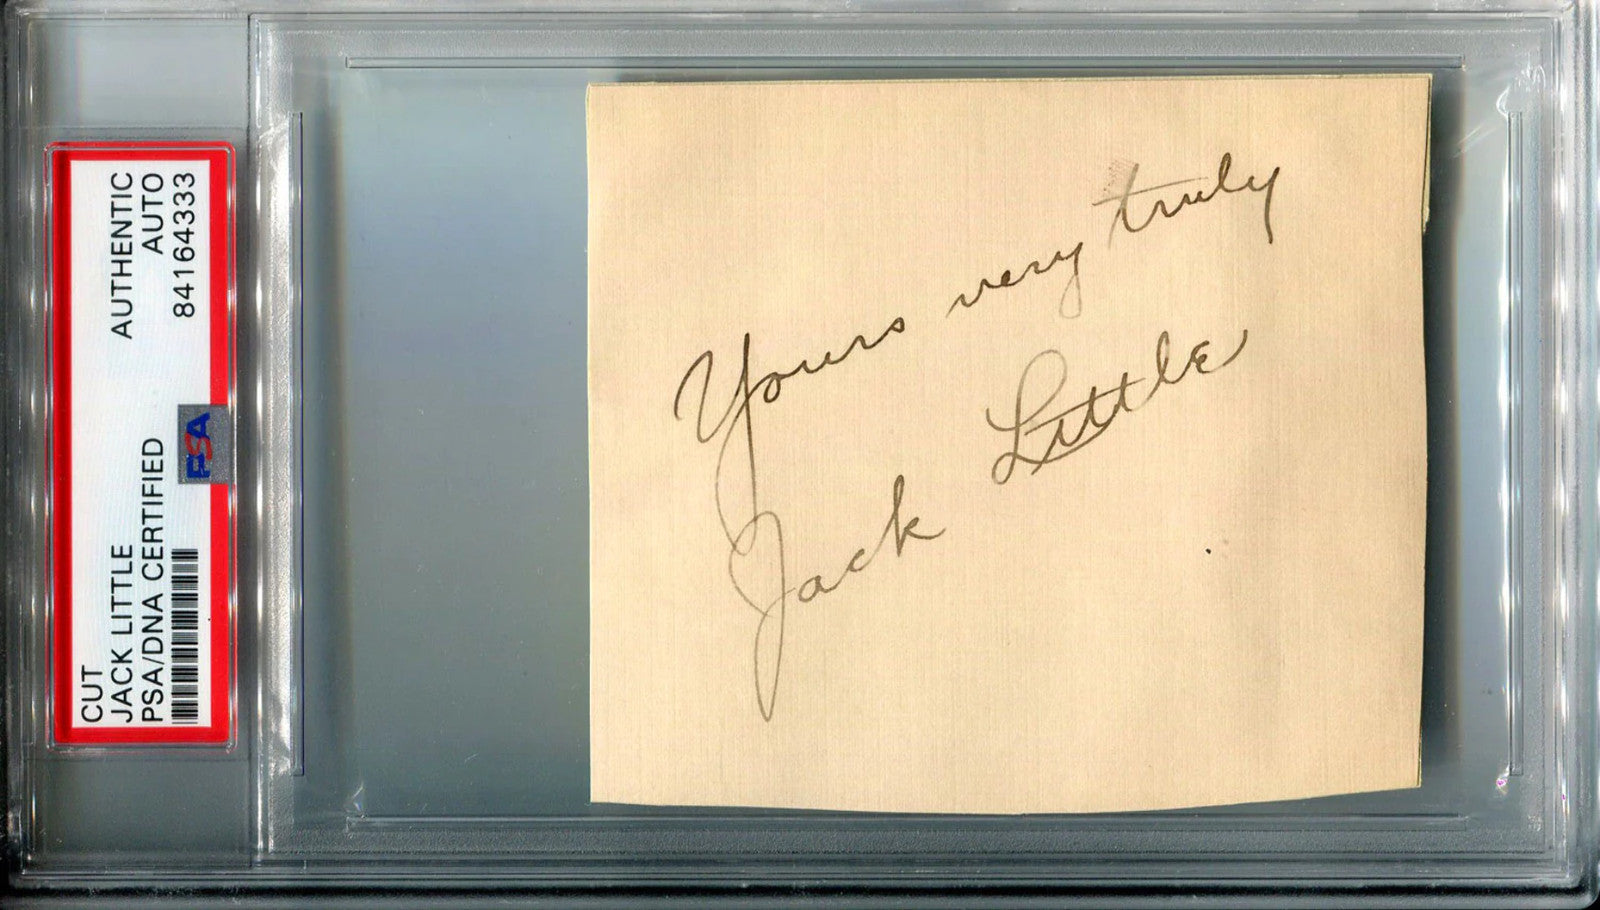 CUT
JACK LITTLE
PSA/DNA CERTIFIED
AUTHENTIC
AUTO
84164333
PSA
Yours very truly
Jack Little